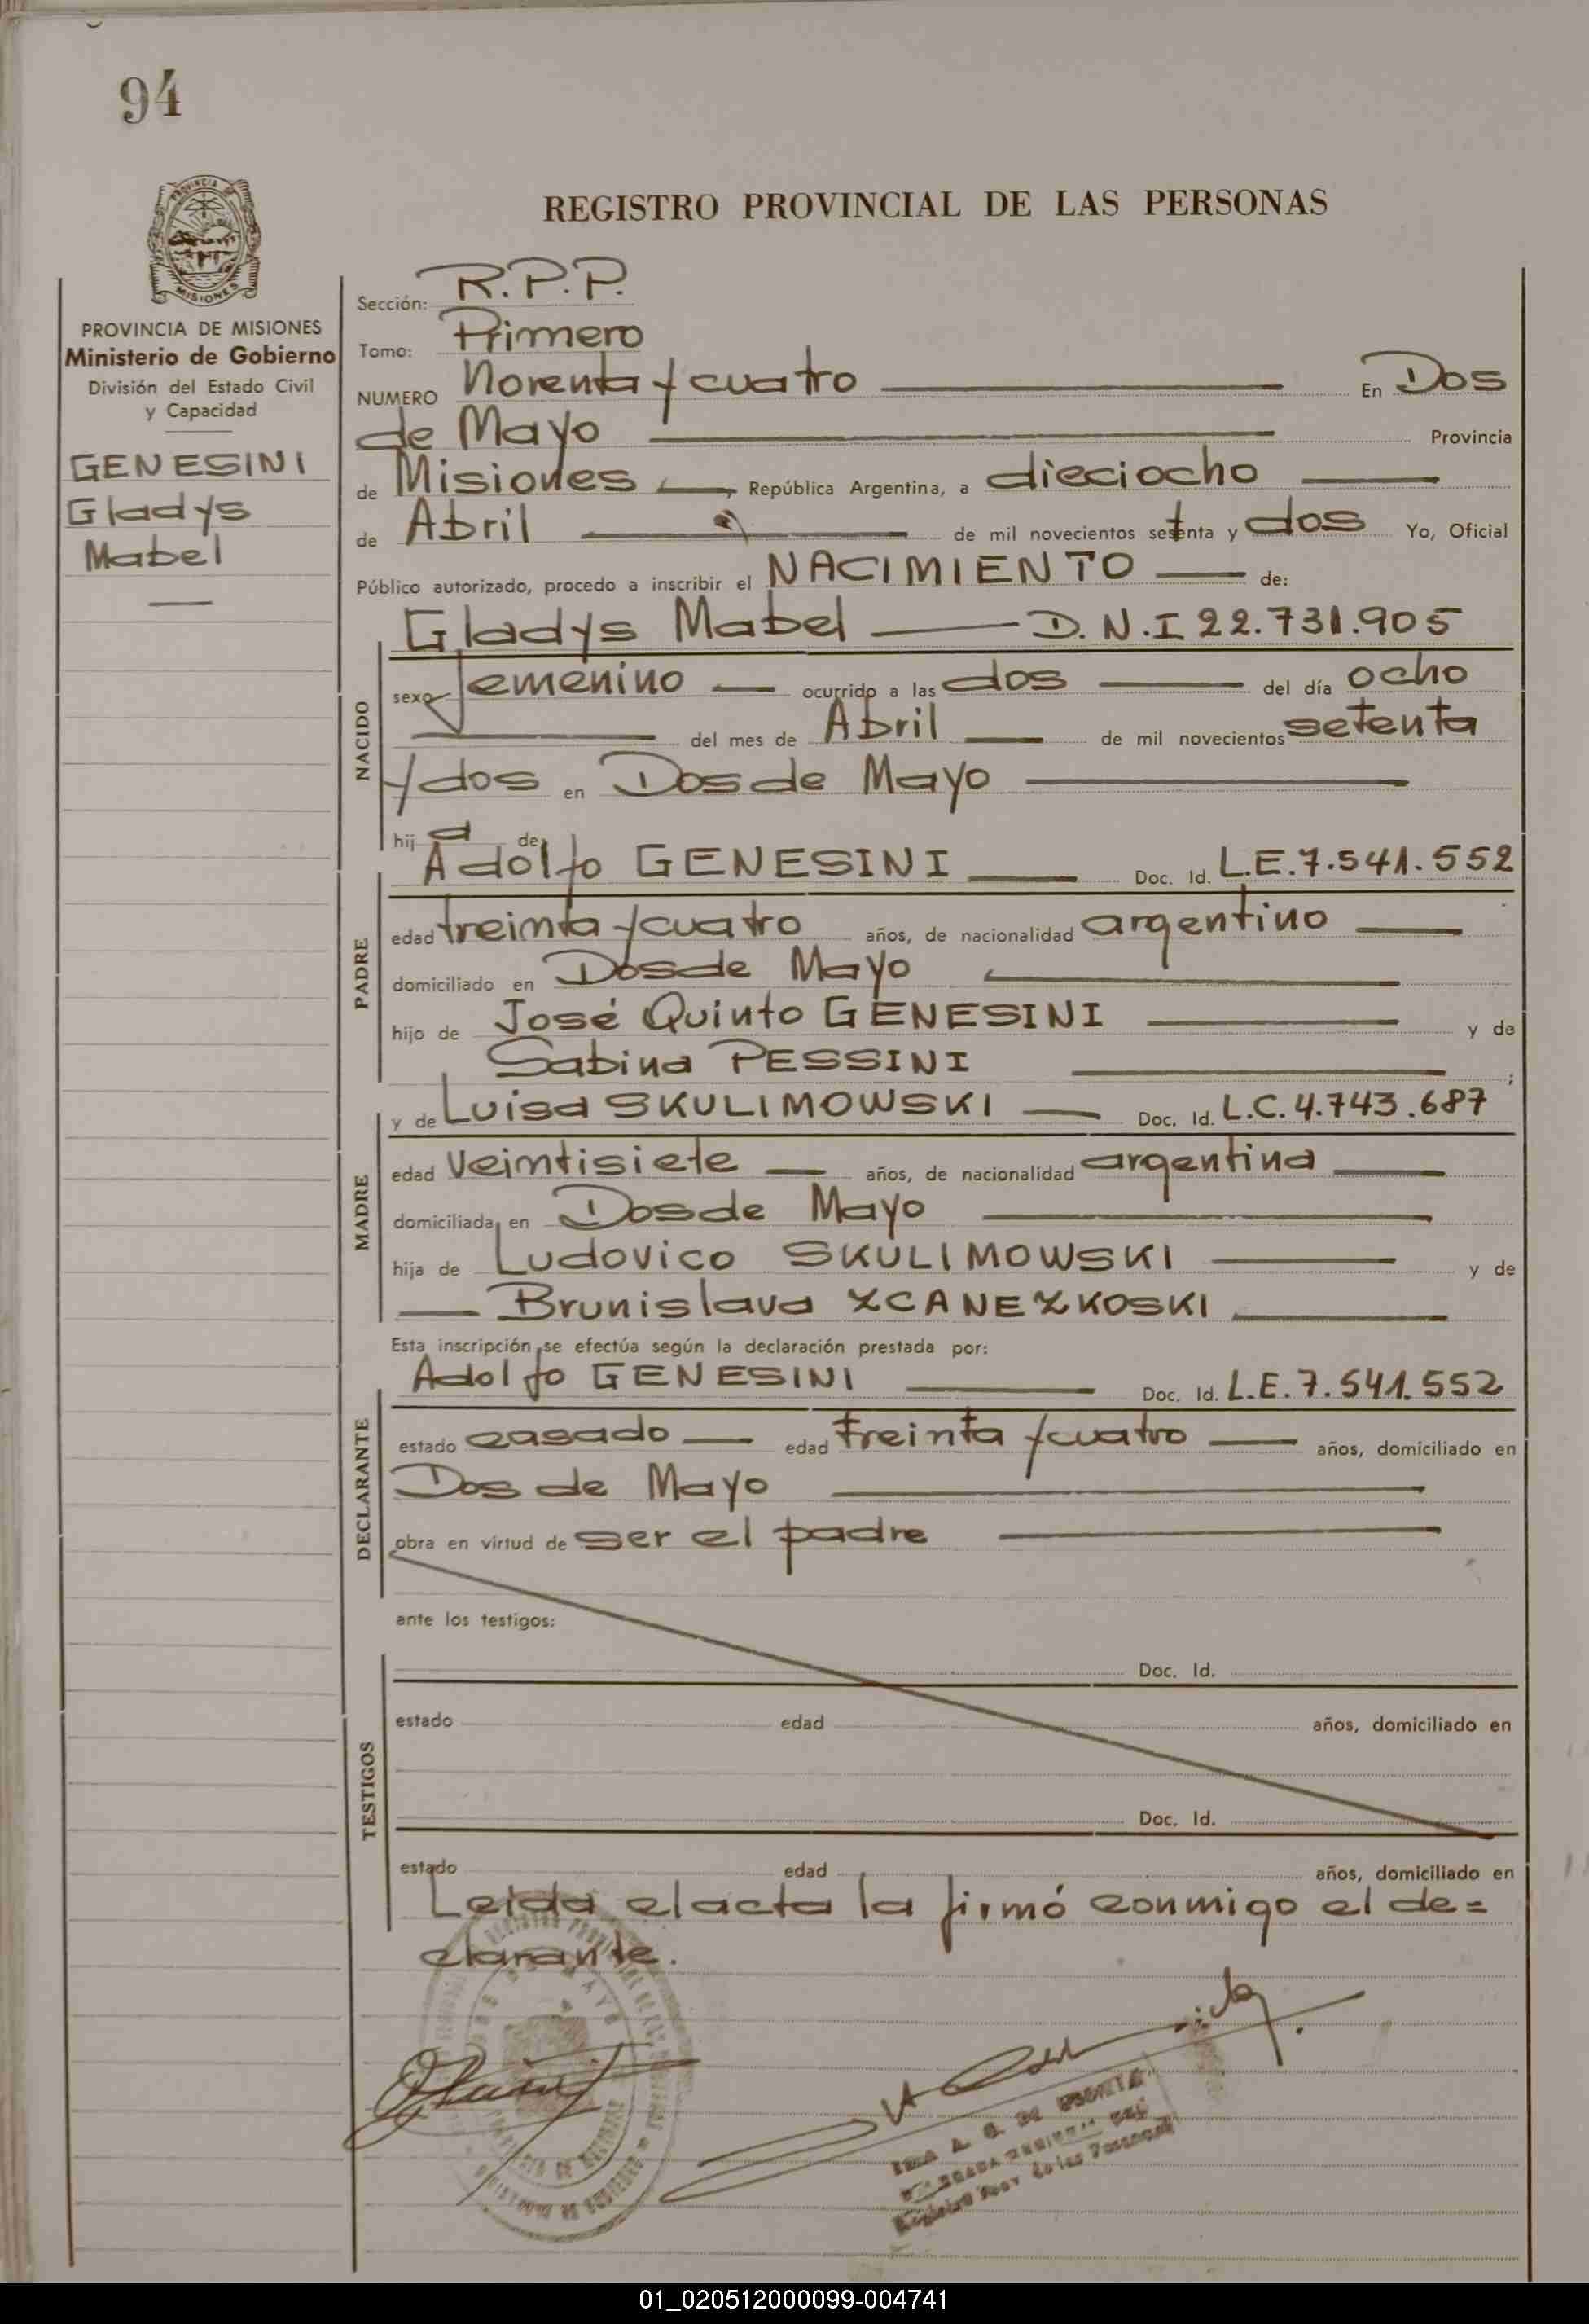 94
REGISTRO PROVINCIAL DE LAS PERSONAS
PROVINCIA DE MISIONES
MISIONES
PROVINCIA DE MISIONES
Ministerio de Gobierno
División del Estado Civil
y Capacidad
GENESINI
Gladys
Mabel
Sección: R.P.P.
Tomo: Primero
NUMERO Noventa y cuatro En Dos
de Mayo Provincia
de Misiones, República Argentina, a dieciocho
de Abril de mil novecientos setenta y dos Yo, Oficial
Público autorizado, procedo a inscribir el NACIMIENTO de:
Gladys Mabel D.N.I 22.731.905
NACIDO
sexo femenino ocurrido a las dos del día ocho
del mes de Abril de mil novecientos setenta
y dos en Dos de Mayo
hij a de
Adolfo GENESINI Doc. Id. L.E.7.541.552
PADRE
edad treinta y cuatro años, de nacionalidad argentino
domiciliado en Dos de Mayo
hijo de José Quinto GENESINI y de
Sabina PESSINI ;
y de Luisa SKULIMOWSKI Doc. Id. L.C.4.743.687
MADRE
edad Veintisiete años, de nacionalidad argentina
domiciliada en Dos de Mayo
hija de Ludovico SKULIMOWSKI y de
Brunislava ZCANEZKOSKI
Esta inscripción se efectúa según la declaración prestada por:
Adolfo GENESINI Doc. Id. L.E.7.541.552
DECLARANTE
estado casado edad treinta y cuatro años, domiciliado en
Dos de Mayo
obra en virtud de ser el padre
ante los testigos:
Doc. Id.
TESTIGOS
estado edad años, domiciliado en
Doc. Id.
estado edad años, domiciliado en
Leida el acta la firmó conmigo el de=
clarante.
01_020512000099-004741